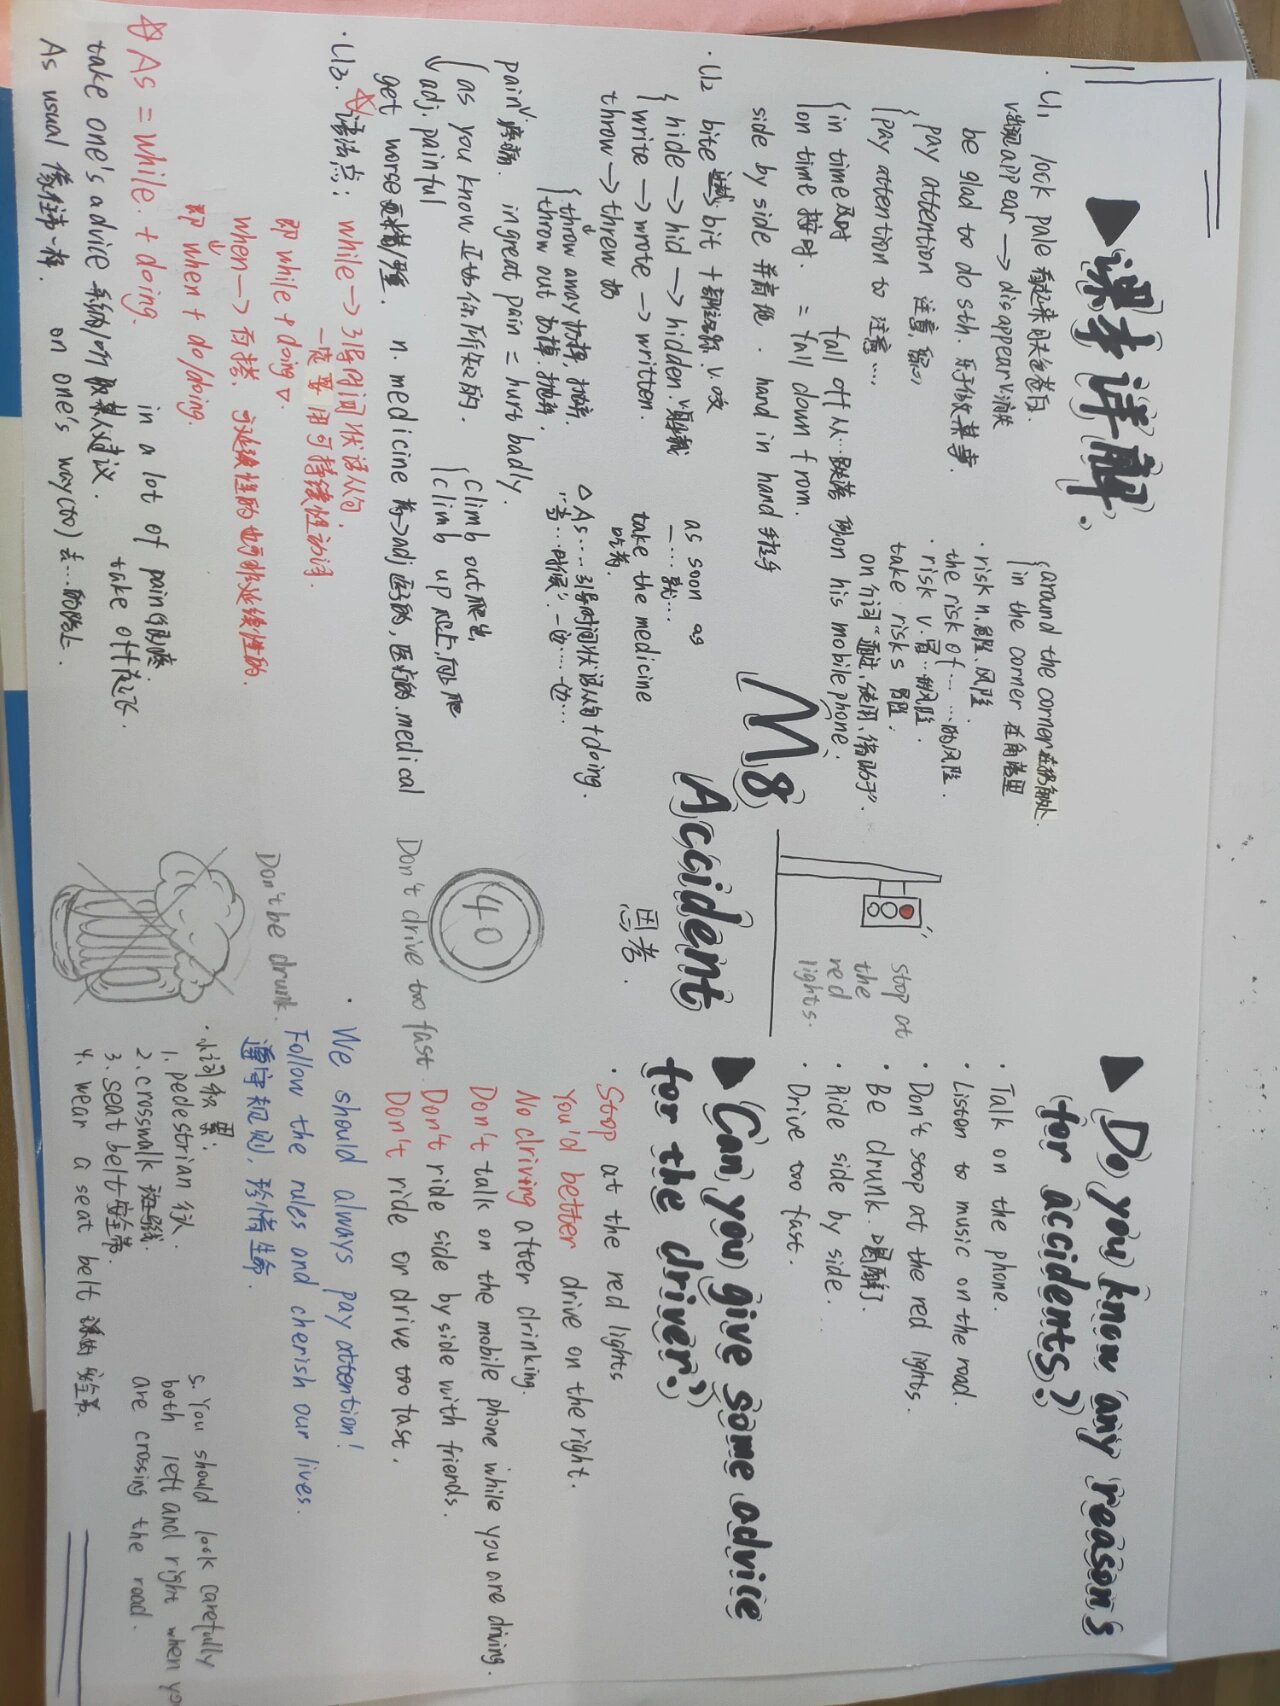 ▶课本详解.
· U1 look pale 看起来面色苍白
v.出现appear → disappear v.消失
be glad to do sth. 乐于做某事.
pay attention 注意
pay attention to 注意...
in time 及时
on time 按时.
fall off 从...跌落
= fall down from.
side by side 并肩地. hand in hand 手拉手
around the corner 在拐角处.
in the corner 在角落里
· risk n.冒险、风险
the risk of ... ...的风险.
· risk v. 冒...的风险.
take risks 冒险.
on 介词 "通过、使用、借助于".
on his mobile phone.
· U2 bite 过去式 bit + v.咬
hide → hid → hidden
write → wrote → written.
throw → threw 扔
throw away 扔掉,抛弃.
throw out 扔掉,抛弃.
pain 疼痛. in great pain = hurt badly.
adj. painful
as you know 正如你所知的.
climb out 爬出
climb up 爬上,向上爬
get worse 更糟/严重. n. medicine 药→adj 医学的,医疗的.medical
as soon as
一...就...
take the medicine
吃药.
△ As... 引导时间状语从句+doing.
"当...时候", 一边...一边...
· U3. ☆语法点: while → 引导时间状语从句,
一定要用可持续性动词.
即 while + doing
when → 百搭. 可延续性的也可非延续性的.
即 when + do/doing.
☆ As = while. + doing.
take one's advice 采纳/听取某人建议.
As usual 像往常一样.
in a lot of pain
take off
on one's way (to) 去...的路上.
M8
Accident
思考.
stop at
the
red
lights.
40
Don't drive too fast
Don't be drunk.
▶ Do you know any reasons
for accidents?
· Talk on the phone.
· Listen to music on the road.
· Don't stop at the red lights.
· Be drunk. 喝醉了.
· Ride side by side.
· Drive too fast.
▶ Can you give some advice
for the driver?
· Stop at the red lights
You'd better drive on the right.
No driving after drinking.
Don't talk on the mobile phone while you are driving.
Don't ride side by side with friends.
Don't ride or drive too fast.
· We should always pay attention!
Follow the rules and cherish our lives.
遵守规则,珍惜生命.
· 小词积累:
1. pedestrian 行人.
2. crosswalk 斑马线.
3. seat belt 安全带.
4. wear a seat belt 安全带.
5. You should look carefully
both left and right when
are crossing the road.